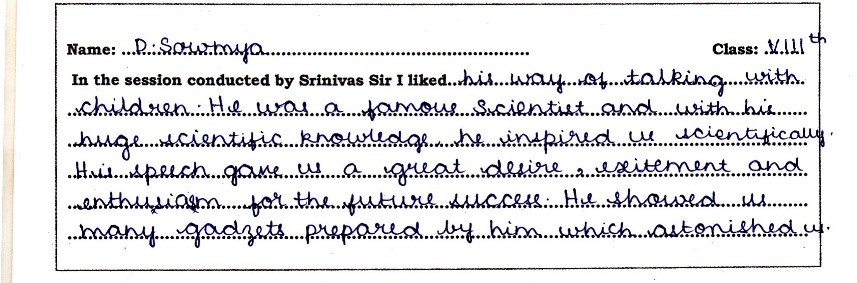 Name: D. Sowmya Class: VIIIth
In the session conducted by Srinivas Sir I liked his way of talking with
children. He was a famous Scientist and with his
huge scientific knowledge, he inspired us scientifically.
His speech gave us a great desire, exitement and
enthusiasm for the future success. He showed us
many gadzets prepared by him which astonished us.